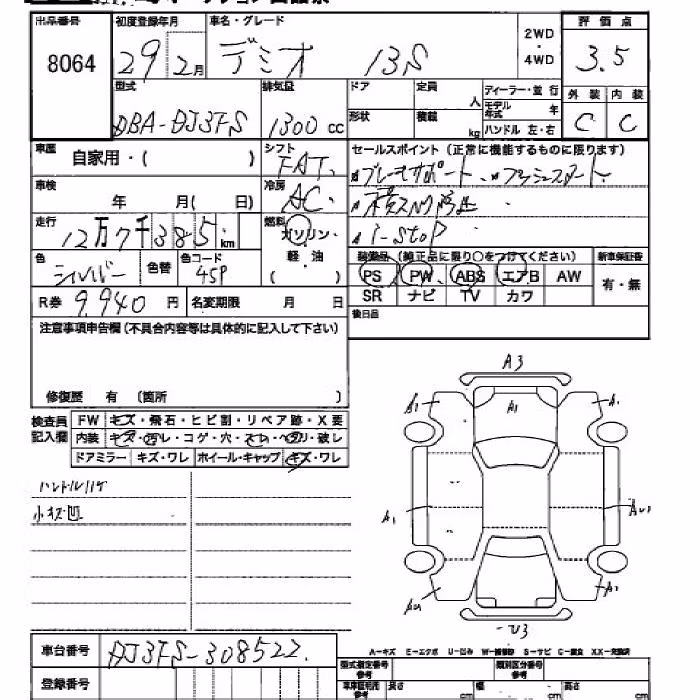 出品番号 初度登録年月 車名・グレード 2WD ・ 4WD 評価点
8064 29 2月 デミオ 13S 3.5
型式 排気量 ドア 定員 人 ディーラー・並行 外装 内装
DBA-DJ3FS 1300 cc 形状 積載 kg モデル年式 年 C C
ハンドル 左・右
車歴 自家用・( ) シフト FAT. セールスポイント (正常に機能するものに限ります)
ブレーキサポート
車検 年 月( 日) 冷房 AC.
走行 12万7千385 km 燃料 ガソリン・軽・油 ( )
i-stop
色 シルバー 色替 色コード 45P
装備品 (純正品に限り○をつけてください) 新車保証書
PS PW ABS エアB AW 有・無
SR ナビ TV カワ
R券 9.940 円 名変期限 月 日
後日品
注意事項申告欄 (不具合内容等は具体的に記入して下さい)
修復歴 有 (箇所 )
検査員記入欄 FW キズ・飛石・ヒビ割・リペア跡・X要
内装 キズ・汚レ・コゲ・穴・スレ・ヘタリ・破レ
ドアミラー キズ・ワレ ホイール・キャップ キズ・ワレ
ハンドルハゲ
小キズ凹
A3
A1 A1 A1
A1
U3
車台番号 DJ3FS-308522
A-キズ E-エクボ U-凹み W-補修跡 S-サビ C-腐食 XX-交換済
登録番号
型式指定番号 類別区分番号
長さ cm 幅 cm 高さ cm